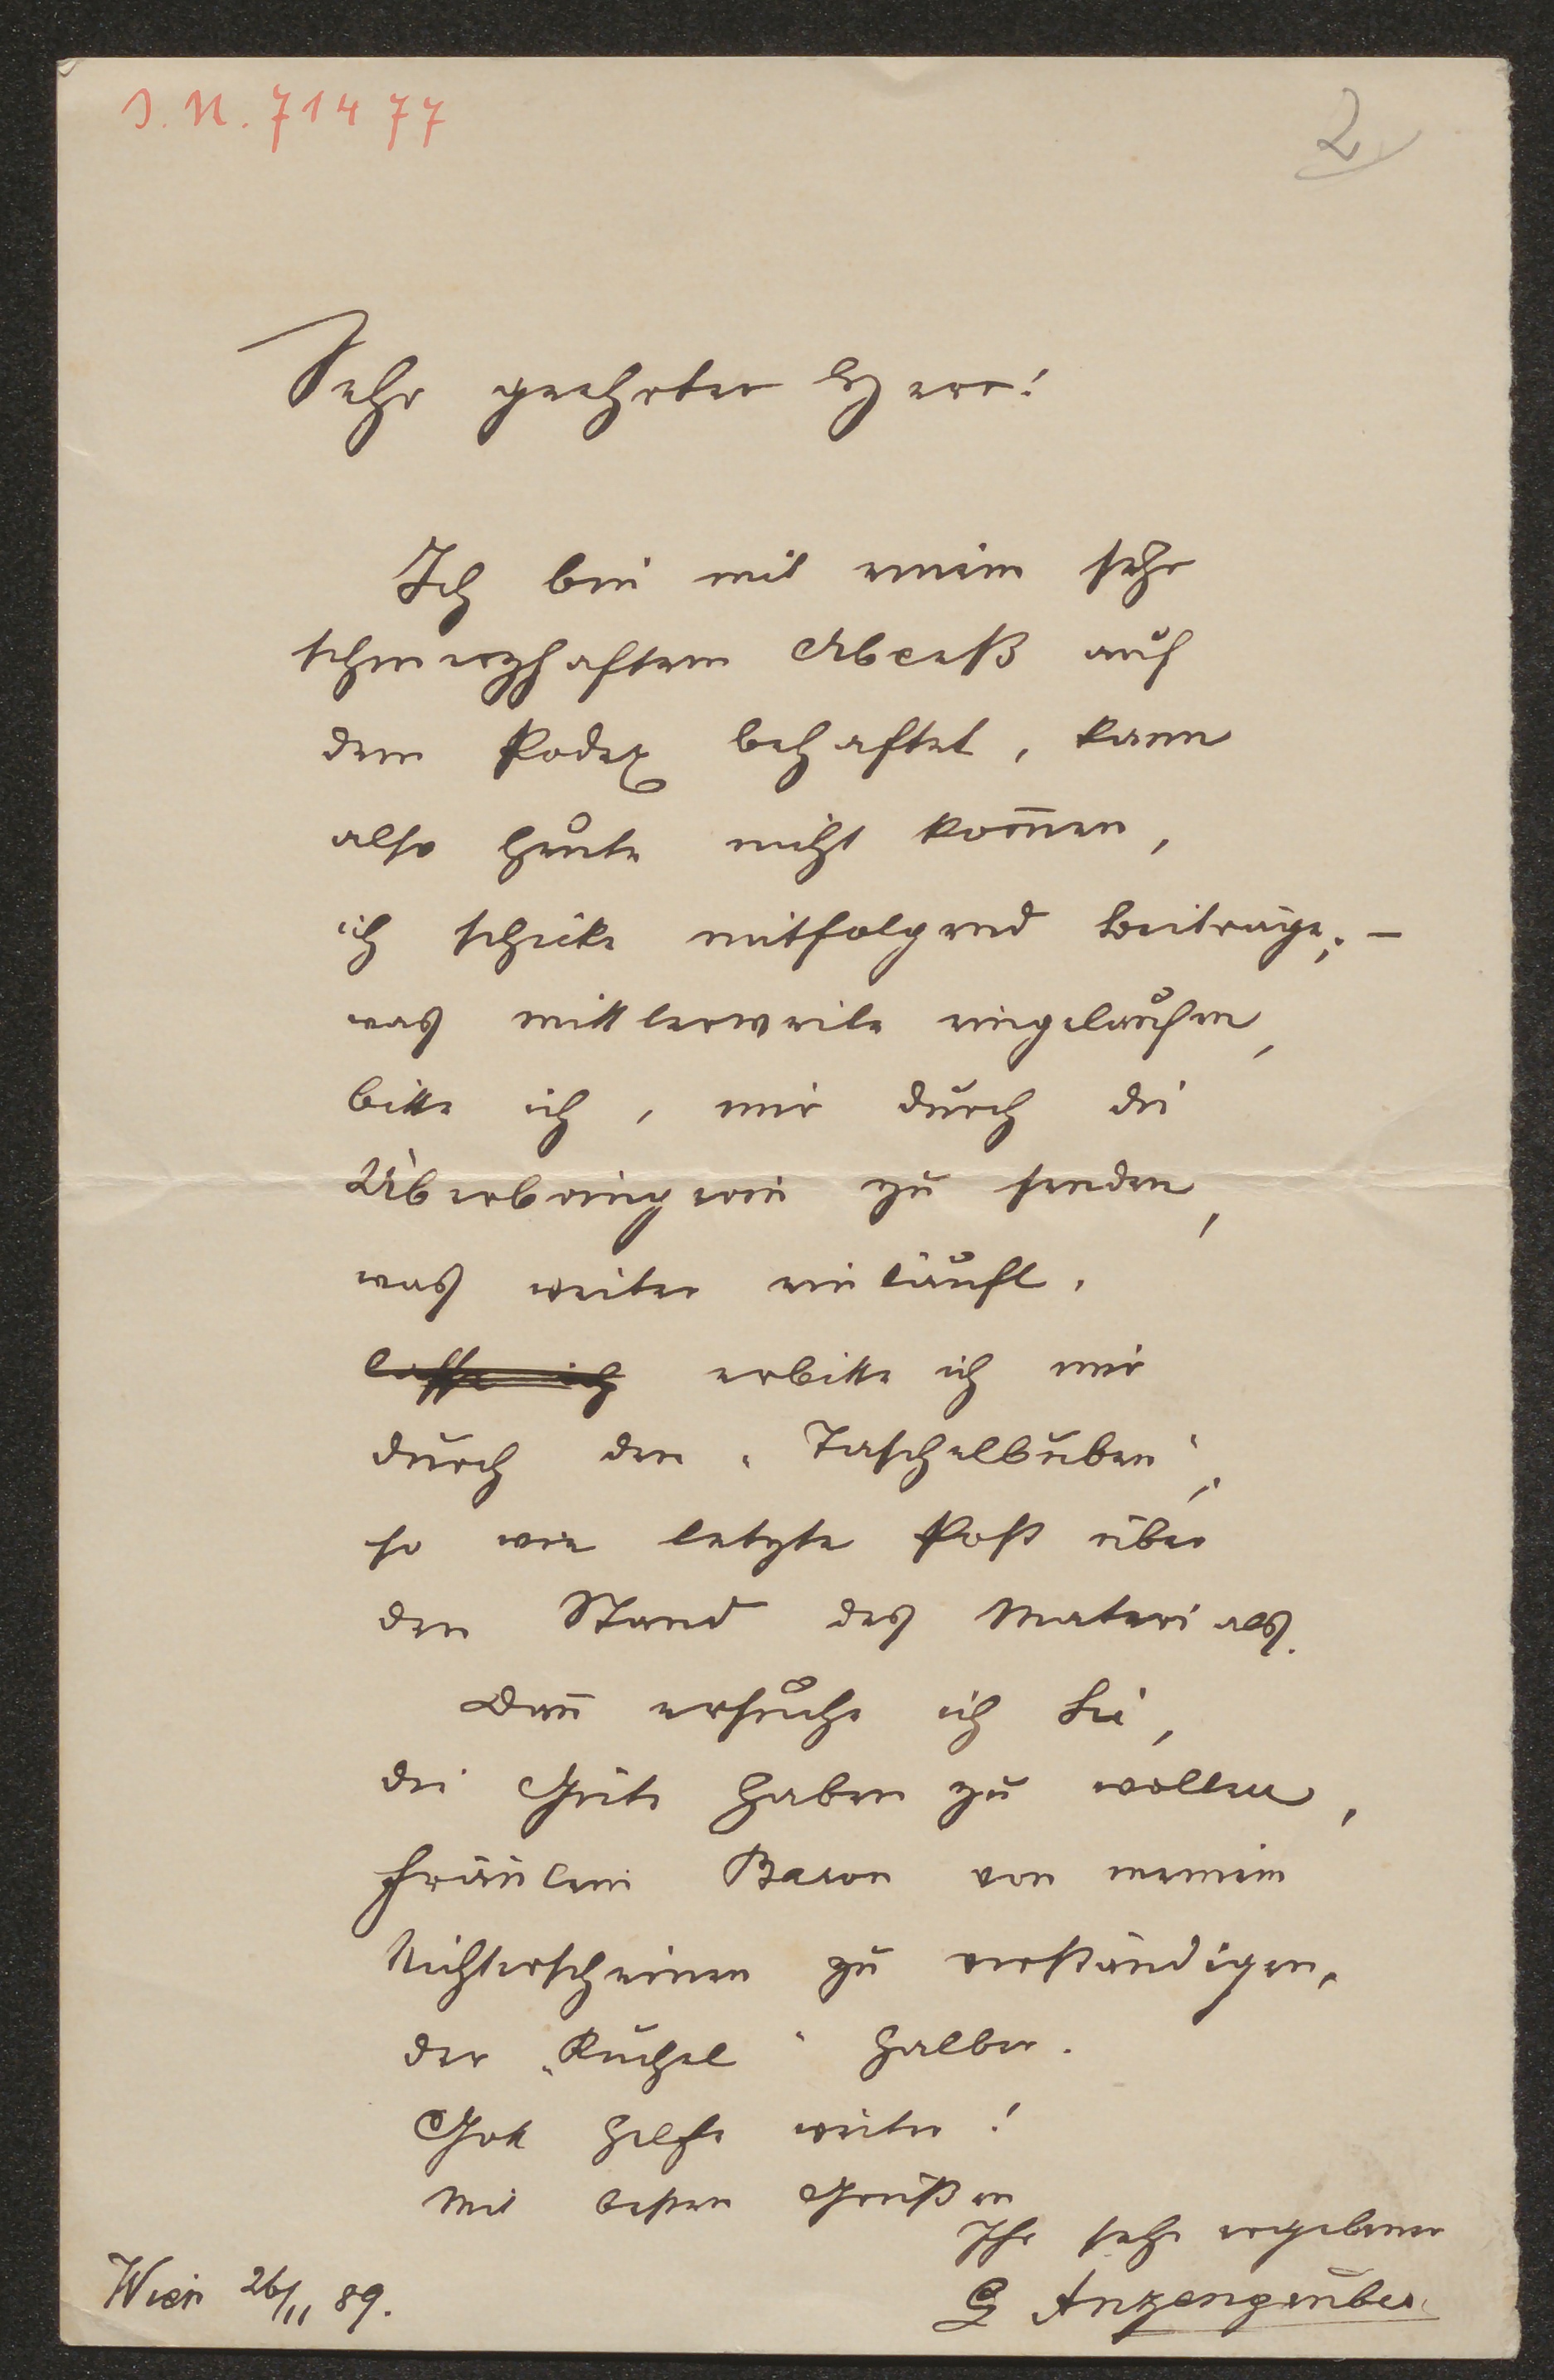 I. N. 71477
2
Sehr geehrter Herr!
Ich bin mit einem sehr
schmerzhaftem Abceß auf
dem Podex behaftet, kann
also heute nicht kom̄en,
ich schicke mitfolgend Beiträge; –
was mittlerweile eingelaufen,
bitte ich, mir durch die
Überbringerin zu senden,
was weiter einläuft,
lasse ich erbitte ich mir
durch den „Taschelbuben",
so wie letzte Post über
den Stand des Materials.
Dan̄ ersuche ich Sie,
die Güte haben zu wollen,
Fräulein Baron von meinem
Nichterscheinen zu verständigen,
der „Kuchel" halber.
Gott helfe weiter!
Mit besten Grüßen
Ihr sehr ergebener
L Anzengruber
Wien 26/11 89.